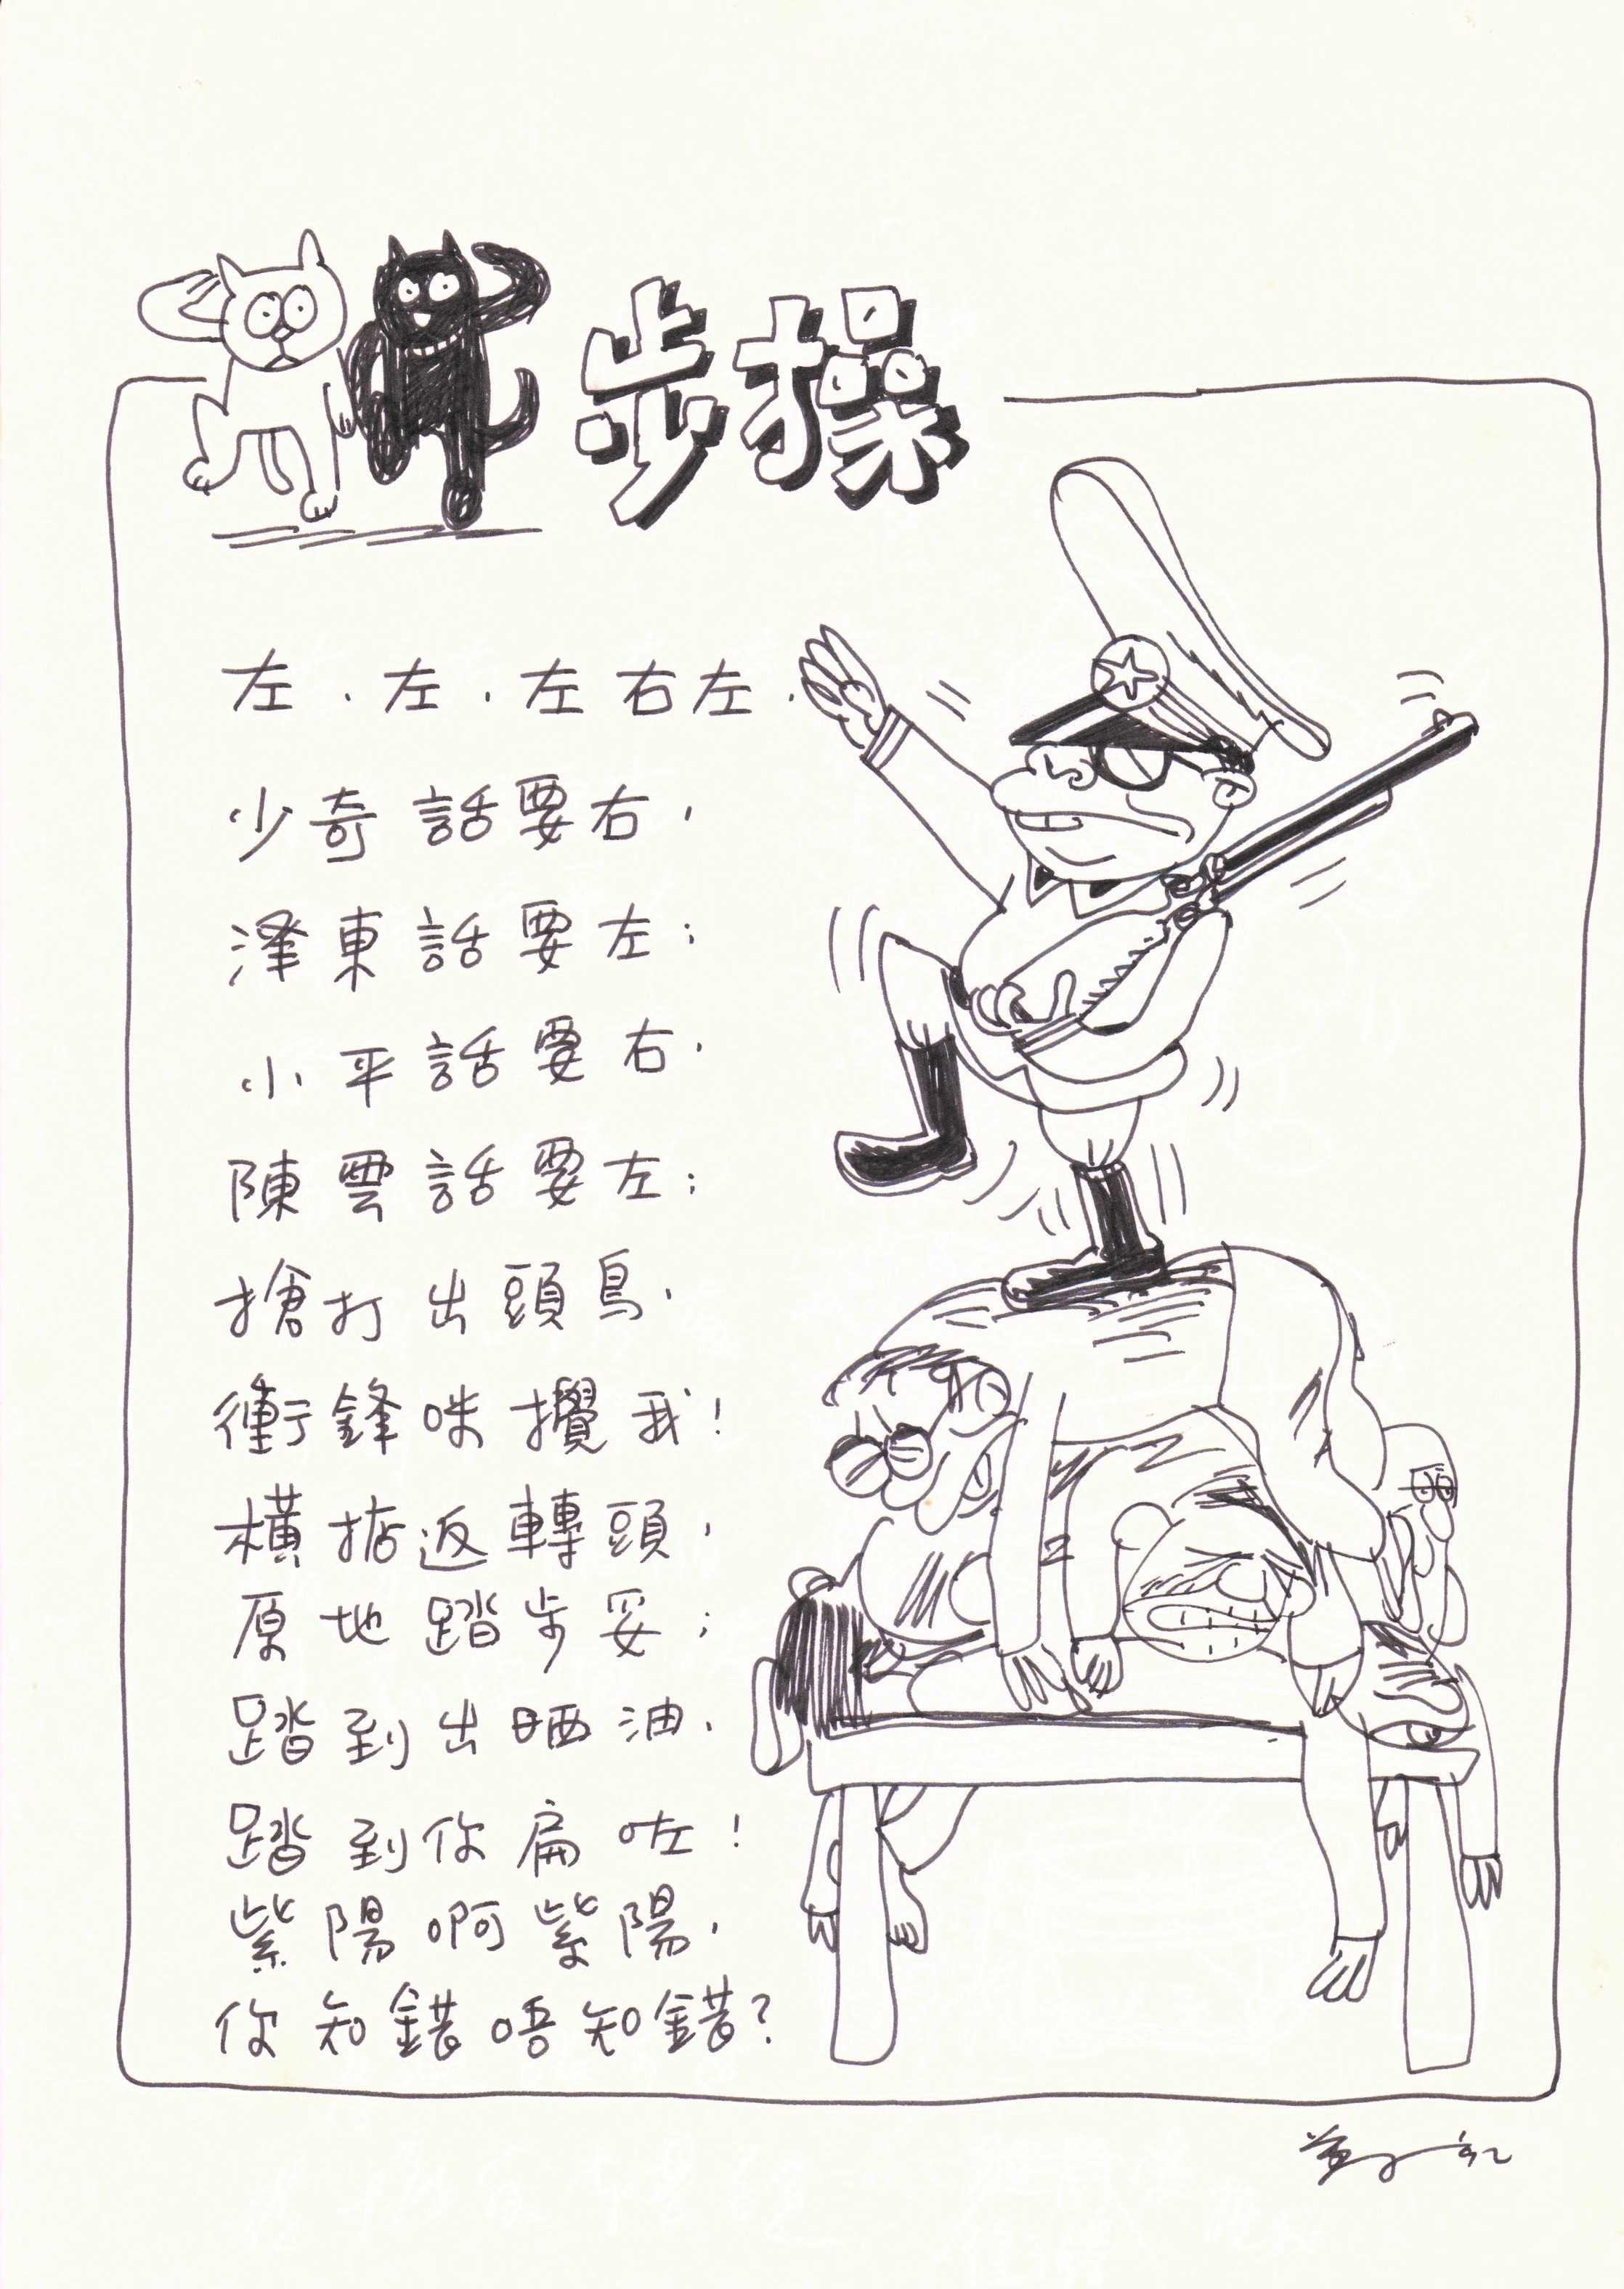 步操
左，左，左右左，
少奇話要右，
澤東話要左；
小平話要右，
陳雲話要左；
搶打出頭鳥，
衝鋒咪攪我！
橫掂返轉頭，
原地踏步妥；
踏到出晒油，
踏到你扁咗！
紫陽啊紫陽，
你知錯唔知錯？